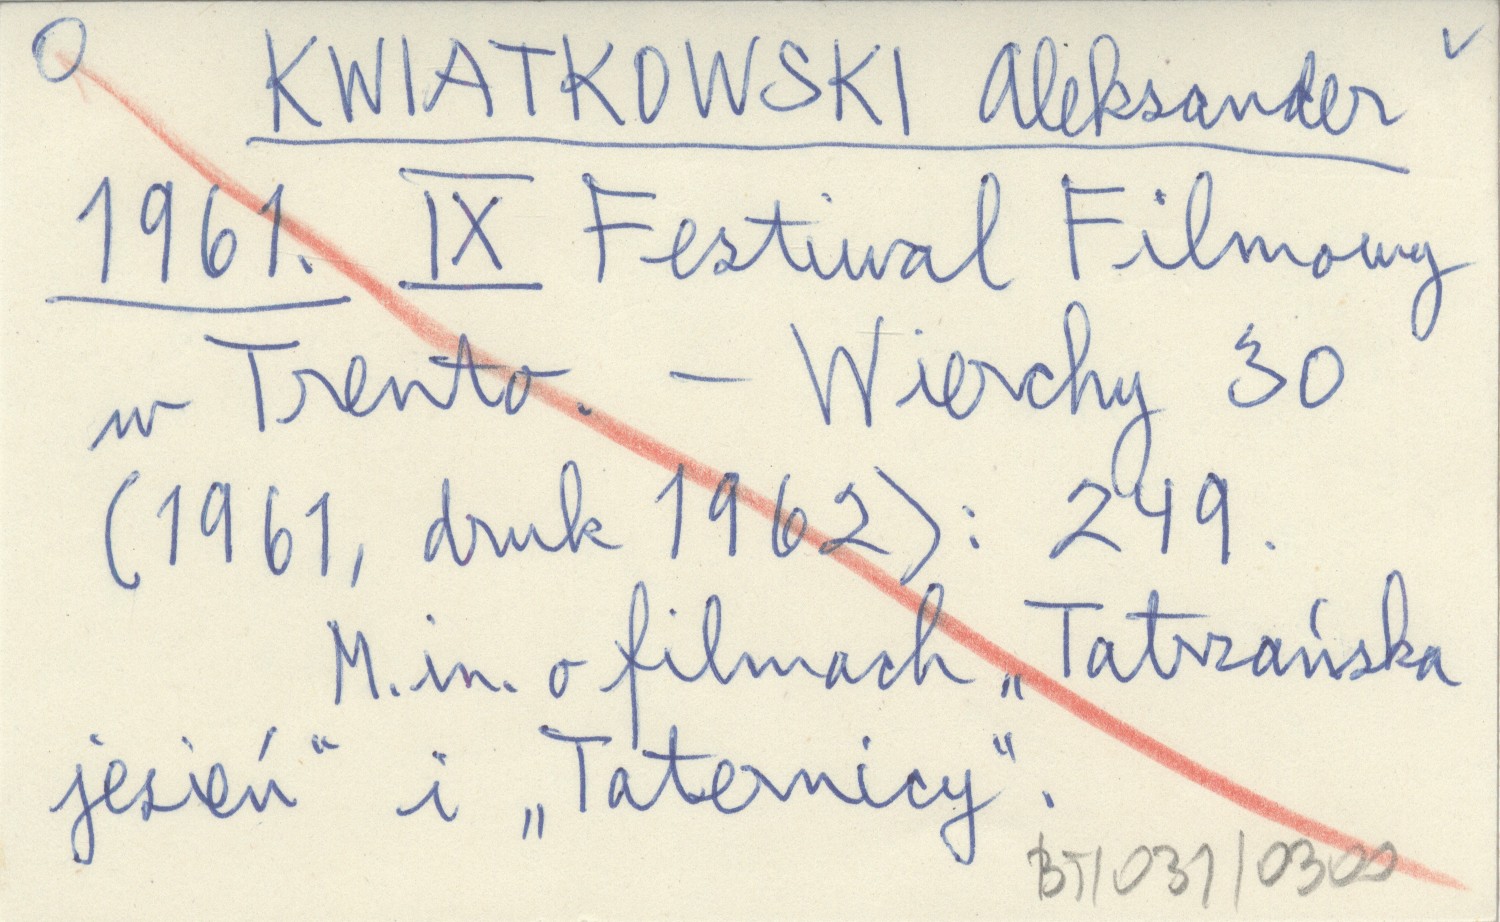 O KWIATKOWSKI Aleksander ✓
1961. IX Festiwal Filmowy
w Trento. – Wierchy 30
(1961, druk 1962): 249.
M.in. o filmach „Tatrzańska
jesień“ i „Taternicy“.
BT/031/0300